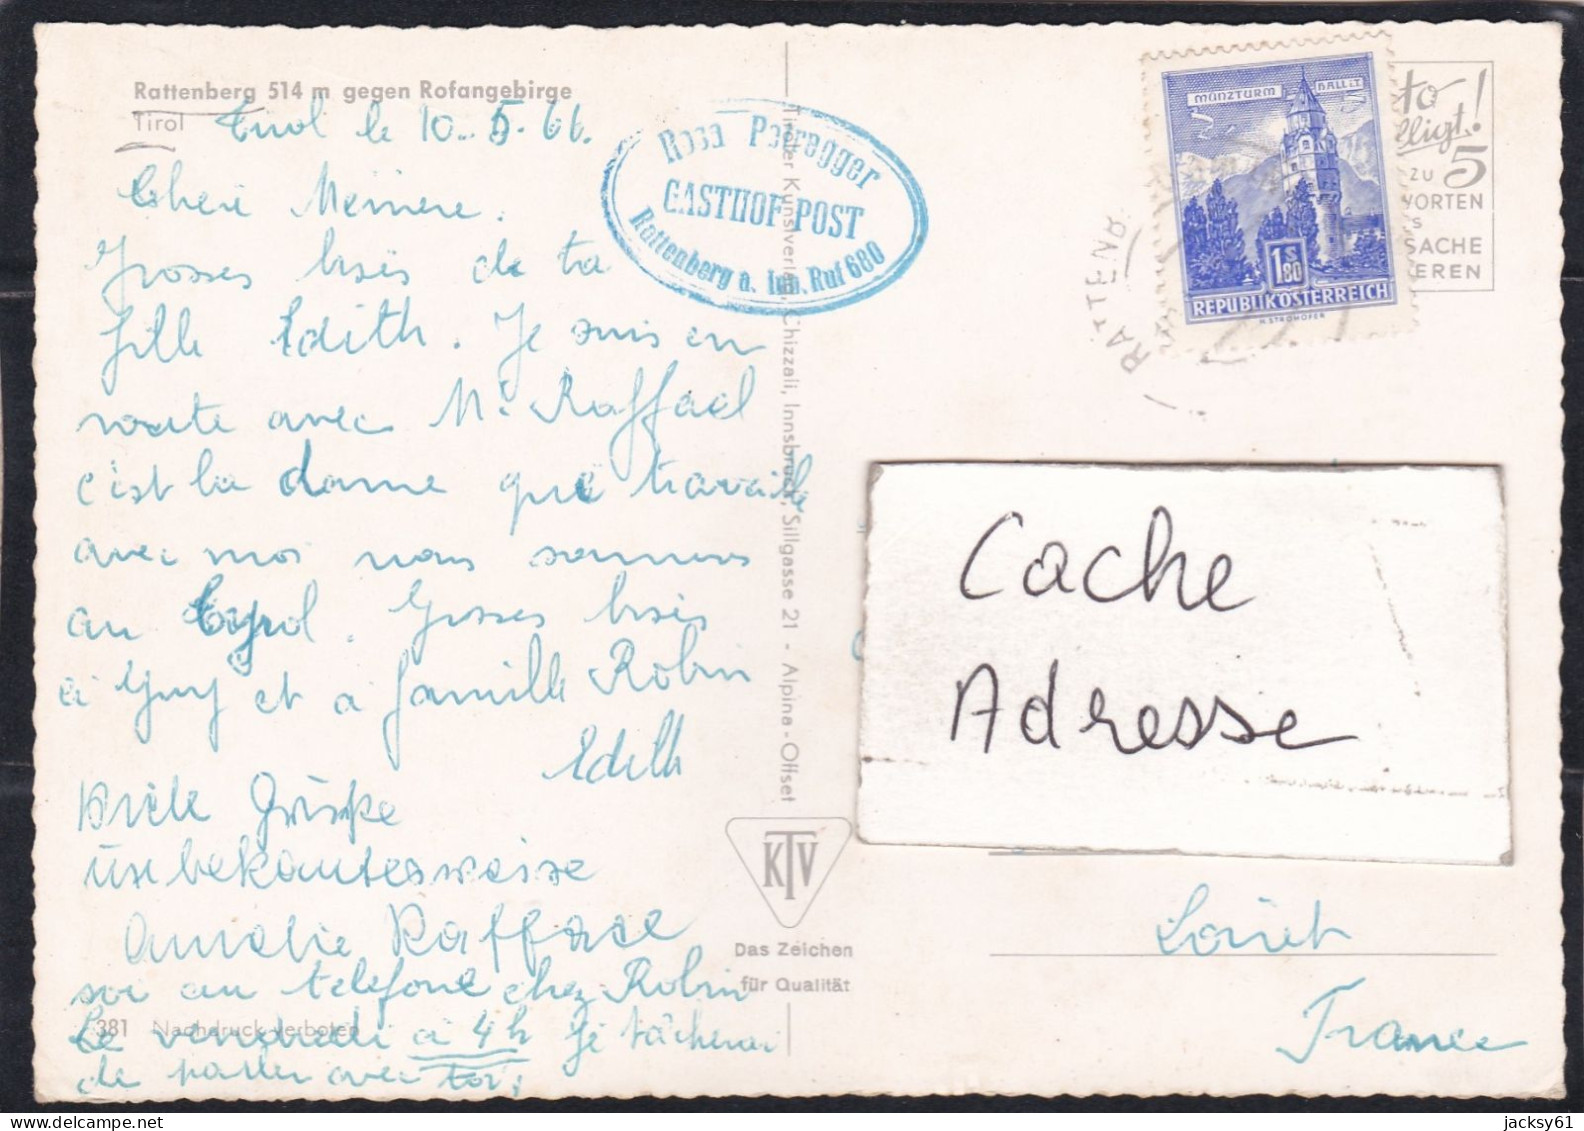 Rattenberg 514 m gegen Rofangebirge
Tirol
Tirol le 10. 5. 66.
Cheri Mémere.
Grosses bisës de ta
fille Edith. Je suis en
route avec M. Raffael
c'est la dame que travaille
avec moi nous sommes
au Tyrol. Grosses bisës
a Guy et a famille Robin
Edith
Viele Grüße
unbekanterweise
Amelie Raffael
soi au telefone chez Robin
Le vendredi à 4 h je tâcherai
de parler avec toi.
381 Nachdruck verboten
Rosa
GASTHOF POST
Rattenberg a. Inn, Ruf 680
Tiroler Kunstverlag Chizzali, Innsbruck, Sillgasse 21 - Alpina-Offset
KTV
Das Zeichen
für Qualität
MÜNZTURM HALL i.T.
1.80 S
REPUBLIK ÖSTERREICH
H. STROHOFER
RATTENB
to
lligt!
zu 5
WORTEN
s
SACHE
EREN
Cache
Adresse
Loiret
France
jacksy61